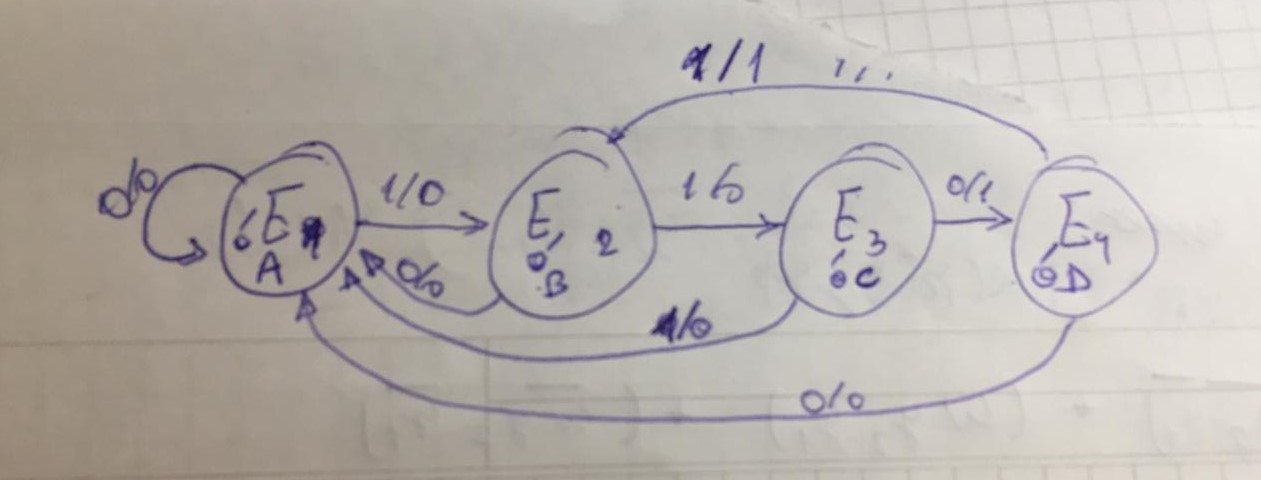 1/1
0/0
E1
A
1/0
E, 2
B
1/0
E3
C
0/1
E4
D
0/0
1/0
0/0